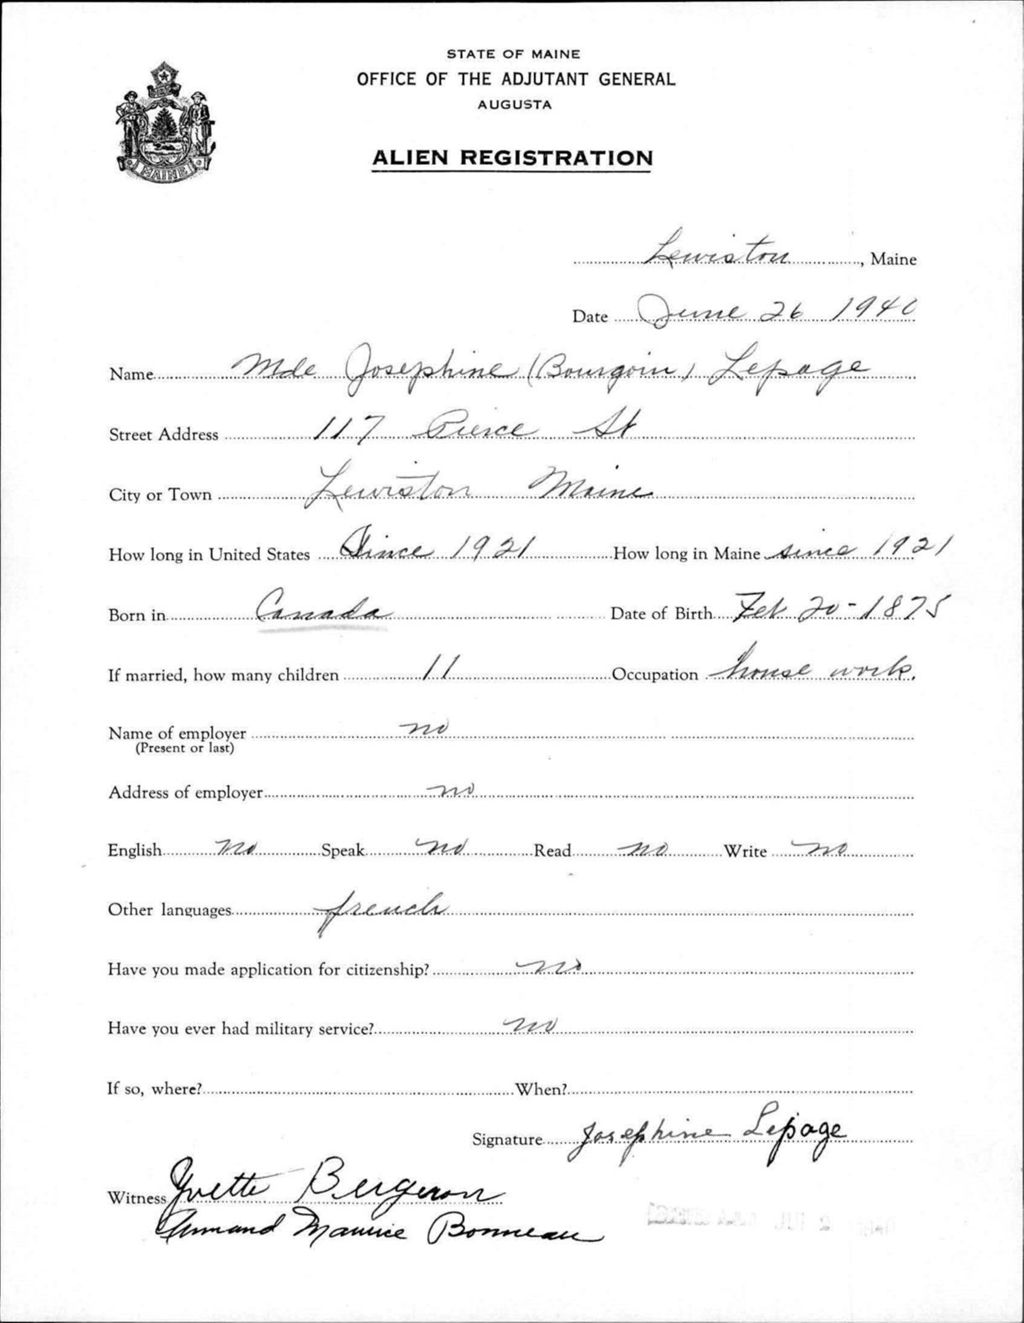 STATE OF MAINE
OFFICE OF THE ADJUTANT GENERAL
AUGUSTA
ALIEN REGISTRATION
MAINE
Lewiston, Maine
Date June 26 1940
Name Mde Josephine (Bourgoin) Lepage
Street Address 117 Pierce St
City or Town Lewiston Maine
How long in United States Since 1921 How long in Maine since 1921
Born in Canada Date of Birth Feb 20-1875
If married, how many children 11 Occupation house work.
Name of employer no
(Present or last)
Address of employer no
English no Speak no Read no Write no
Other languages french
Have you made application for citizenship? no
Have you ever had military service? no
If so, where? When?
Signature Josephine Lepage
Witness Yvette Bergeron
Armand Maurice Bonneau